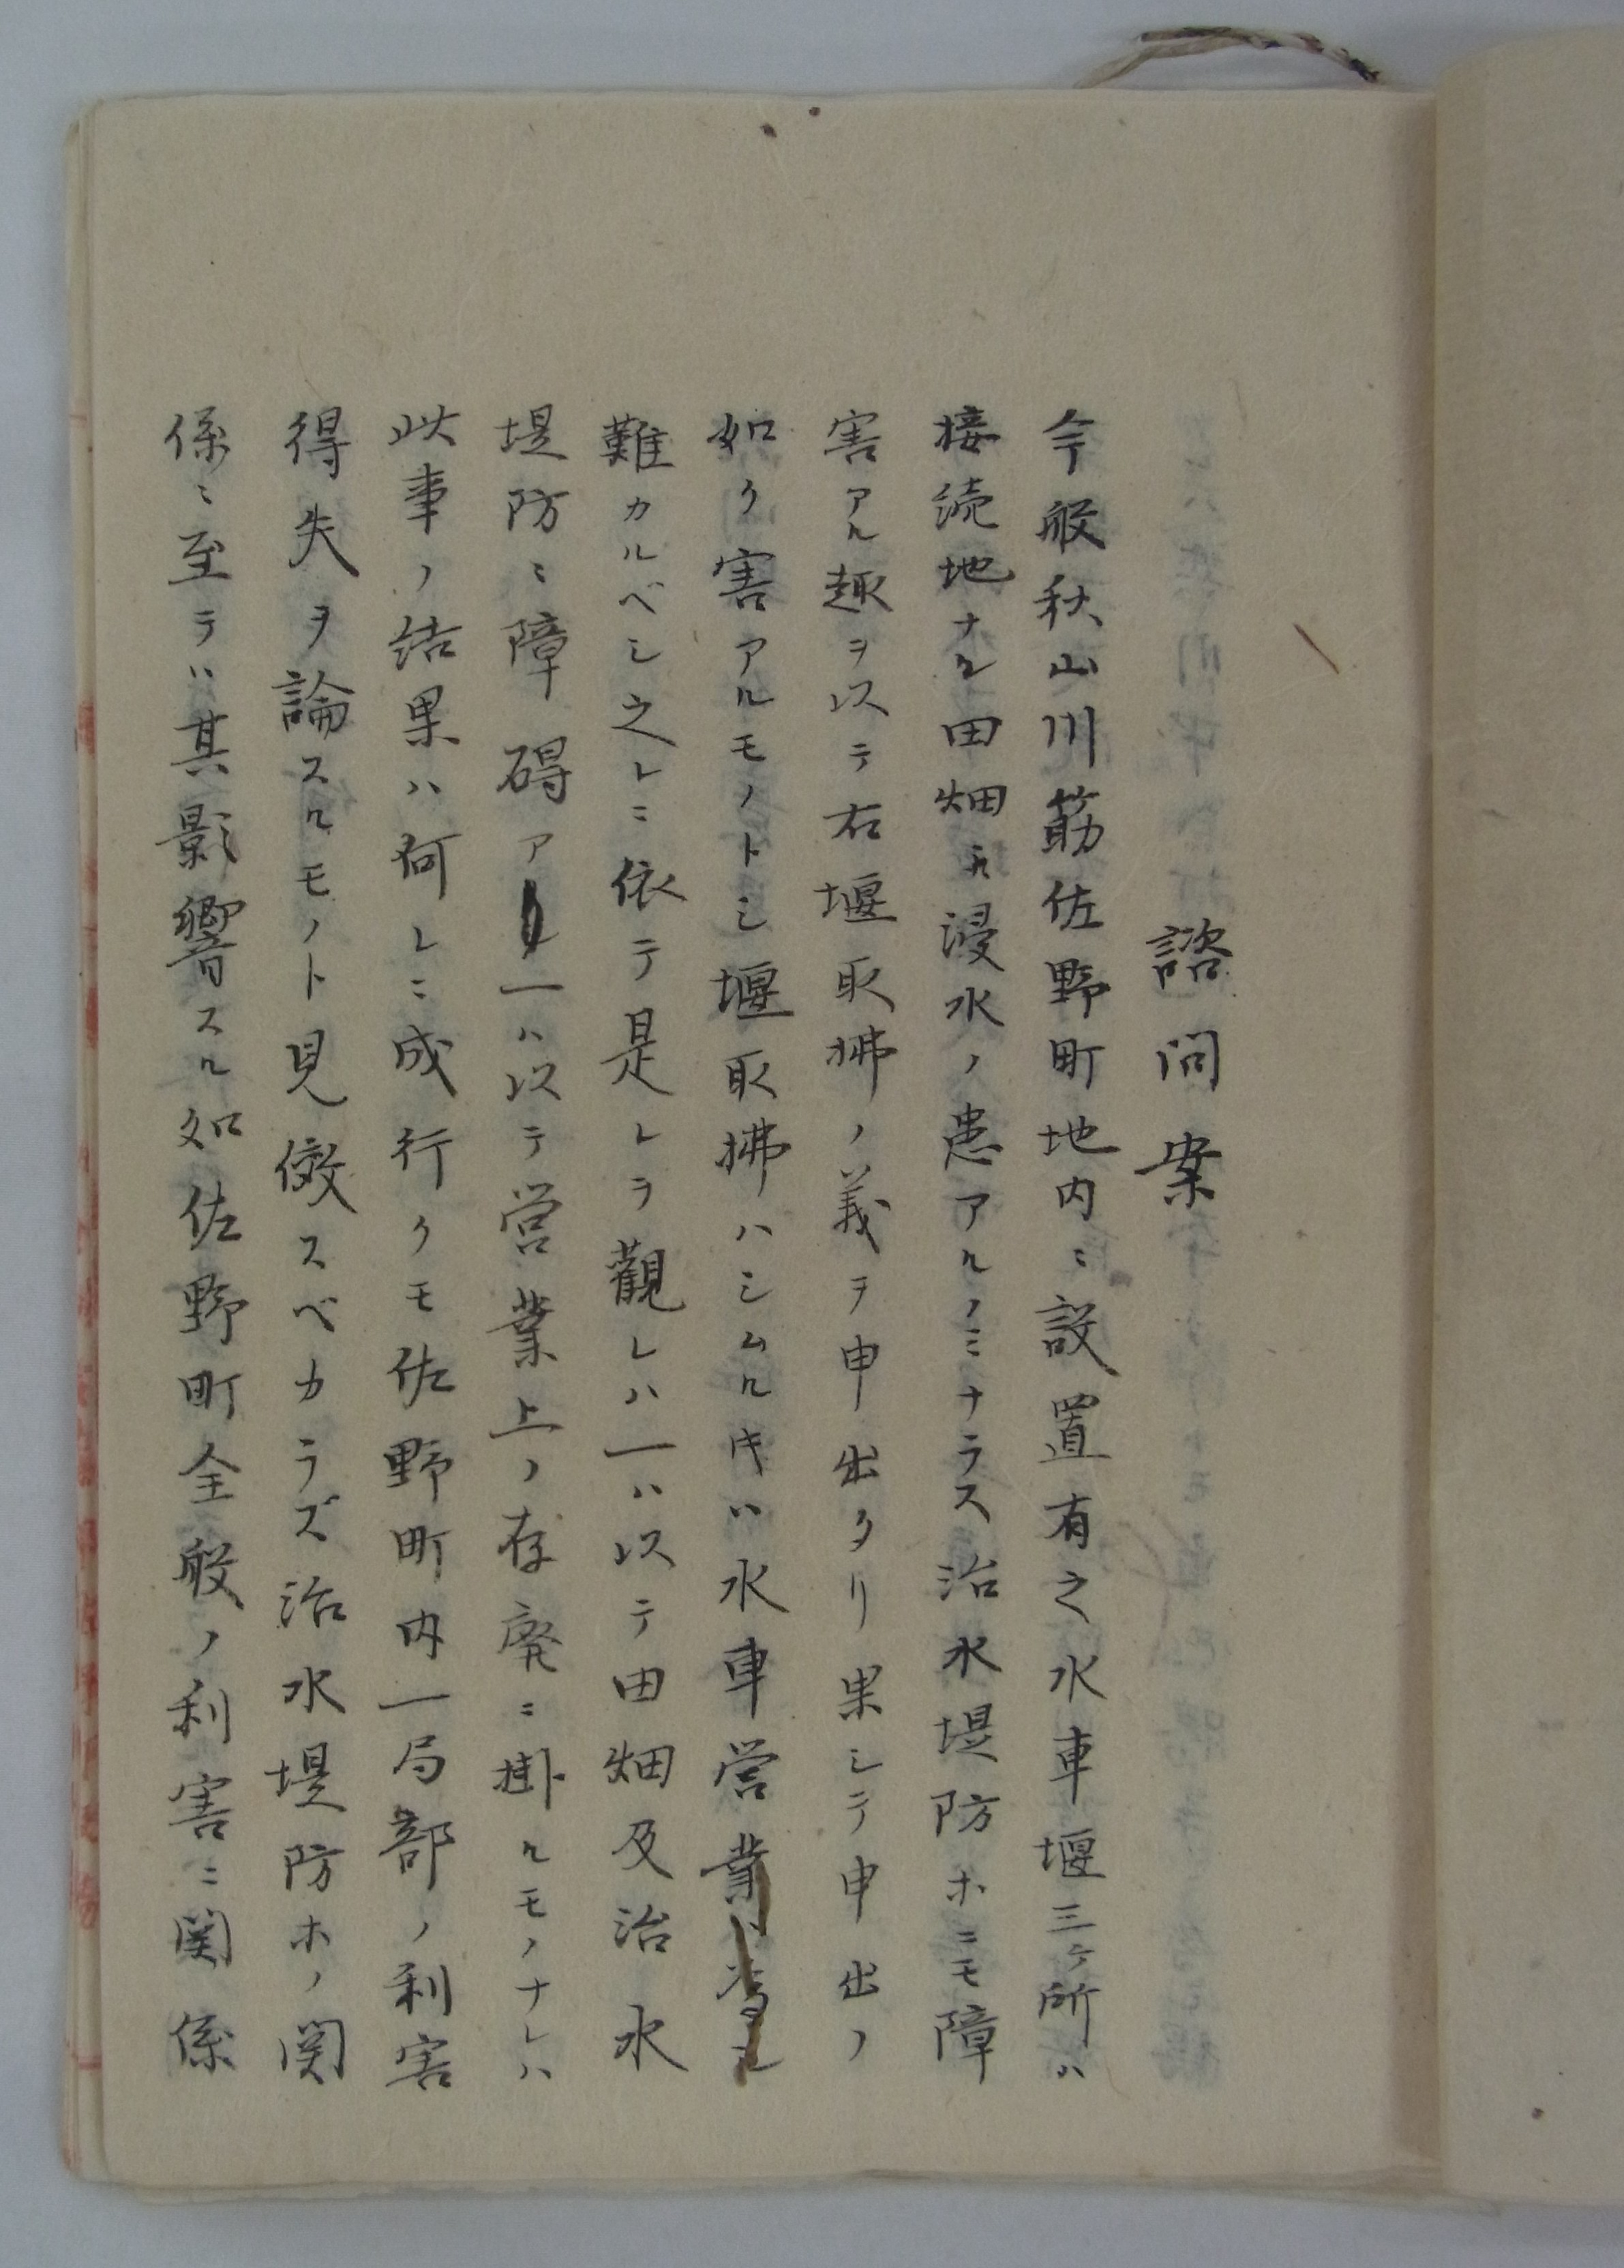 諮問案
今般秋山川筋佐野町地内ニ設置有之水車堰三ケ所ハ
接続地ナル田畑ヘ浸水ノ患アルノミナラス治水堤防ホニモ障
害アル趣ヲ以テ右堰取拂ノ義ヲ申出タリ果シテ申出ノ
如ク害アルモノトシ堰取拂ハシムルキハ水車営業
難カルベシ之レニ依テ是レヲ觀レハ一ハ以テ田畑及治水
堤防ニ障碍ア 一ハ以テ営業上ノ存廃ニ掛ルモノナレハ
此事ノ結果ハ何レニ成行クモ佐野町内一局部ノ利害
得失ヲ論スルモノト見傚スベカラズ治水堤防ホノ関
係ニ至テハ其影響スル如佐野町全般ノ利害ニ関係